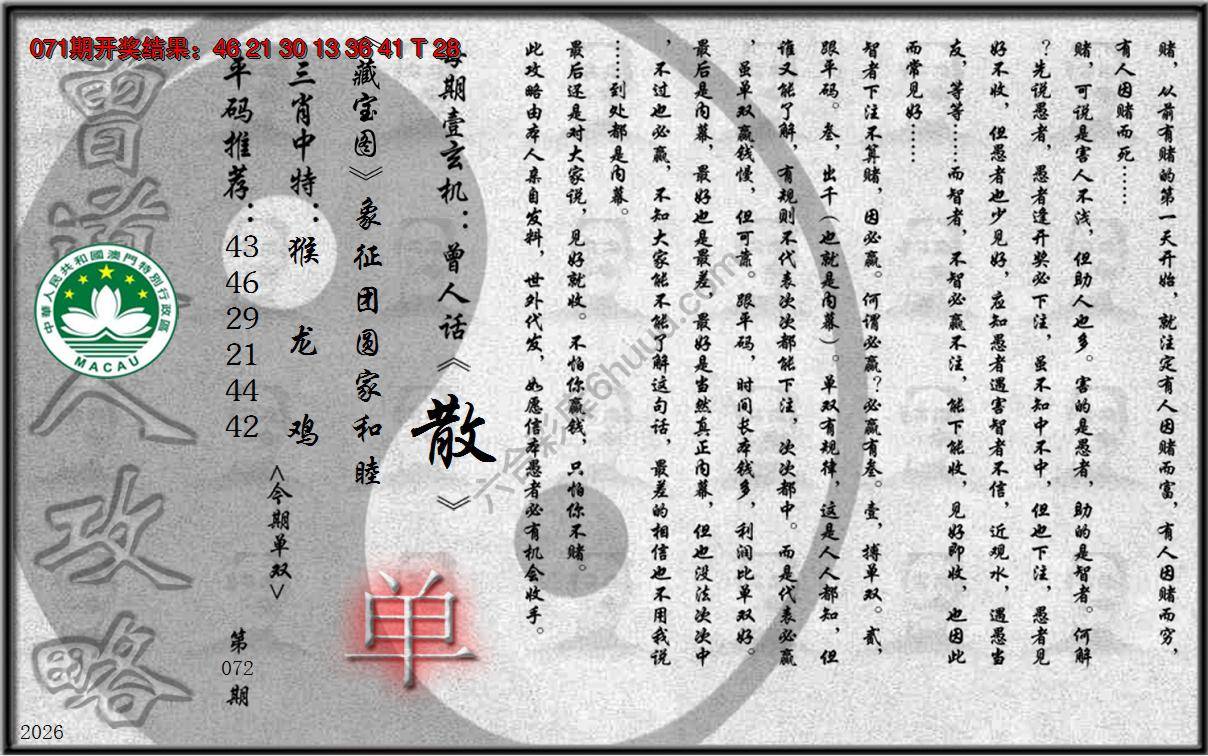 071期开奖结果：46 21 30 13 36 41 T 28
赌，从前有赌的第一天开始，就注定有人因赌而富，有人因赌而穷，
有人因赌而死……
赌，可说是害人不浅，但助人也多。害的是愚者，助的是智者。何解
？先说愚者，愚者逢开奖必下注，虽不知中不中，但也下注，愚者见
好不收，但愚者也少见好，应知愚者遇害智者不信，近观水，遇愚当
友，等等……而智者，不智必赢不注，能下能收，见好即收，也因此
而常见好……
智者下注不算赌，因必赢。何谓必赢？必赢有叁。壹，搏单双。贰，
跟平码。叁，出千（也就是内幕）。单双有规律，这是人人都知，但
谁又能了解，有规则不代表次次都能下注，次次都中。而是代表必赢
，虽单双赢钱慢，但可靠。跟平码，时间长本钱多，利润比单双好。
最后是内幕，最好也是最差，最好是当然真正内幕，但也没法次次中
，不过也必赢，不知大家能不能了解这句话，最差的相信也不用我说
……到处都是内幕。
最后还是对大家说，见好就收。不怕你赢钱，只怕你不赌。
此攻略由本人亲自发料，世外代发，如愿信本愚者必有机会收手。
每期壹玄机：曾人话《散》
《藏宝图》象征团圆家和睦
单
三肖中特：猴 龙 鸡
<今期单双>
平码推荐：
43
46
29
21
44
42
第
072
期
曾道人攻略
中華人民共和國澳門特別行政區
MACAU
六合彩库6huu.com
2026